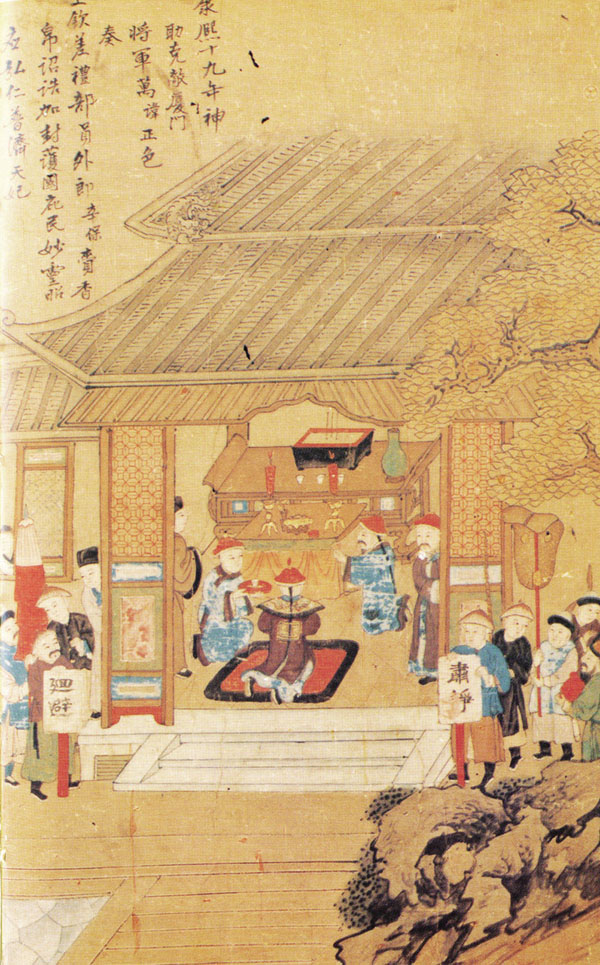 康熙十九年神
助克敵廈門
將軍萬諱正色
奏
上欽差禮部員外郎辛保賫香
帛詔誥加封護國庇民妙靈昭
应弘仁普濟天妃
肅靜
廻避